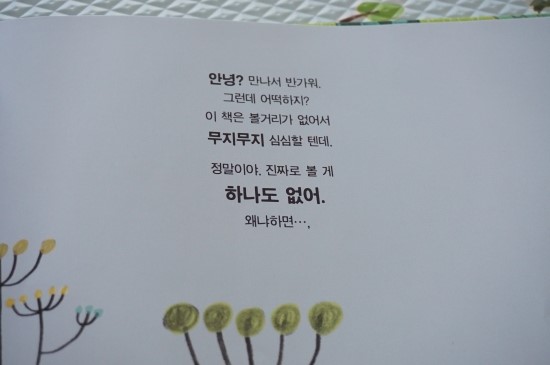 안녕? 만나서 반가워.
그런데 어떡하지?
이 책은 볼거리가 없어서
무지무지 심심할 텐데.
정말이야. 진짜로 볼 게
하나도 없어.
왜냐하면…,